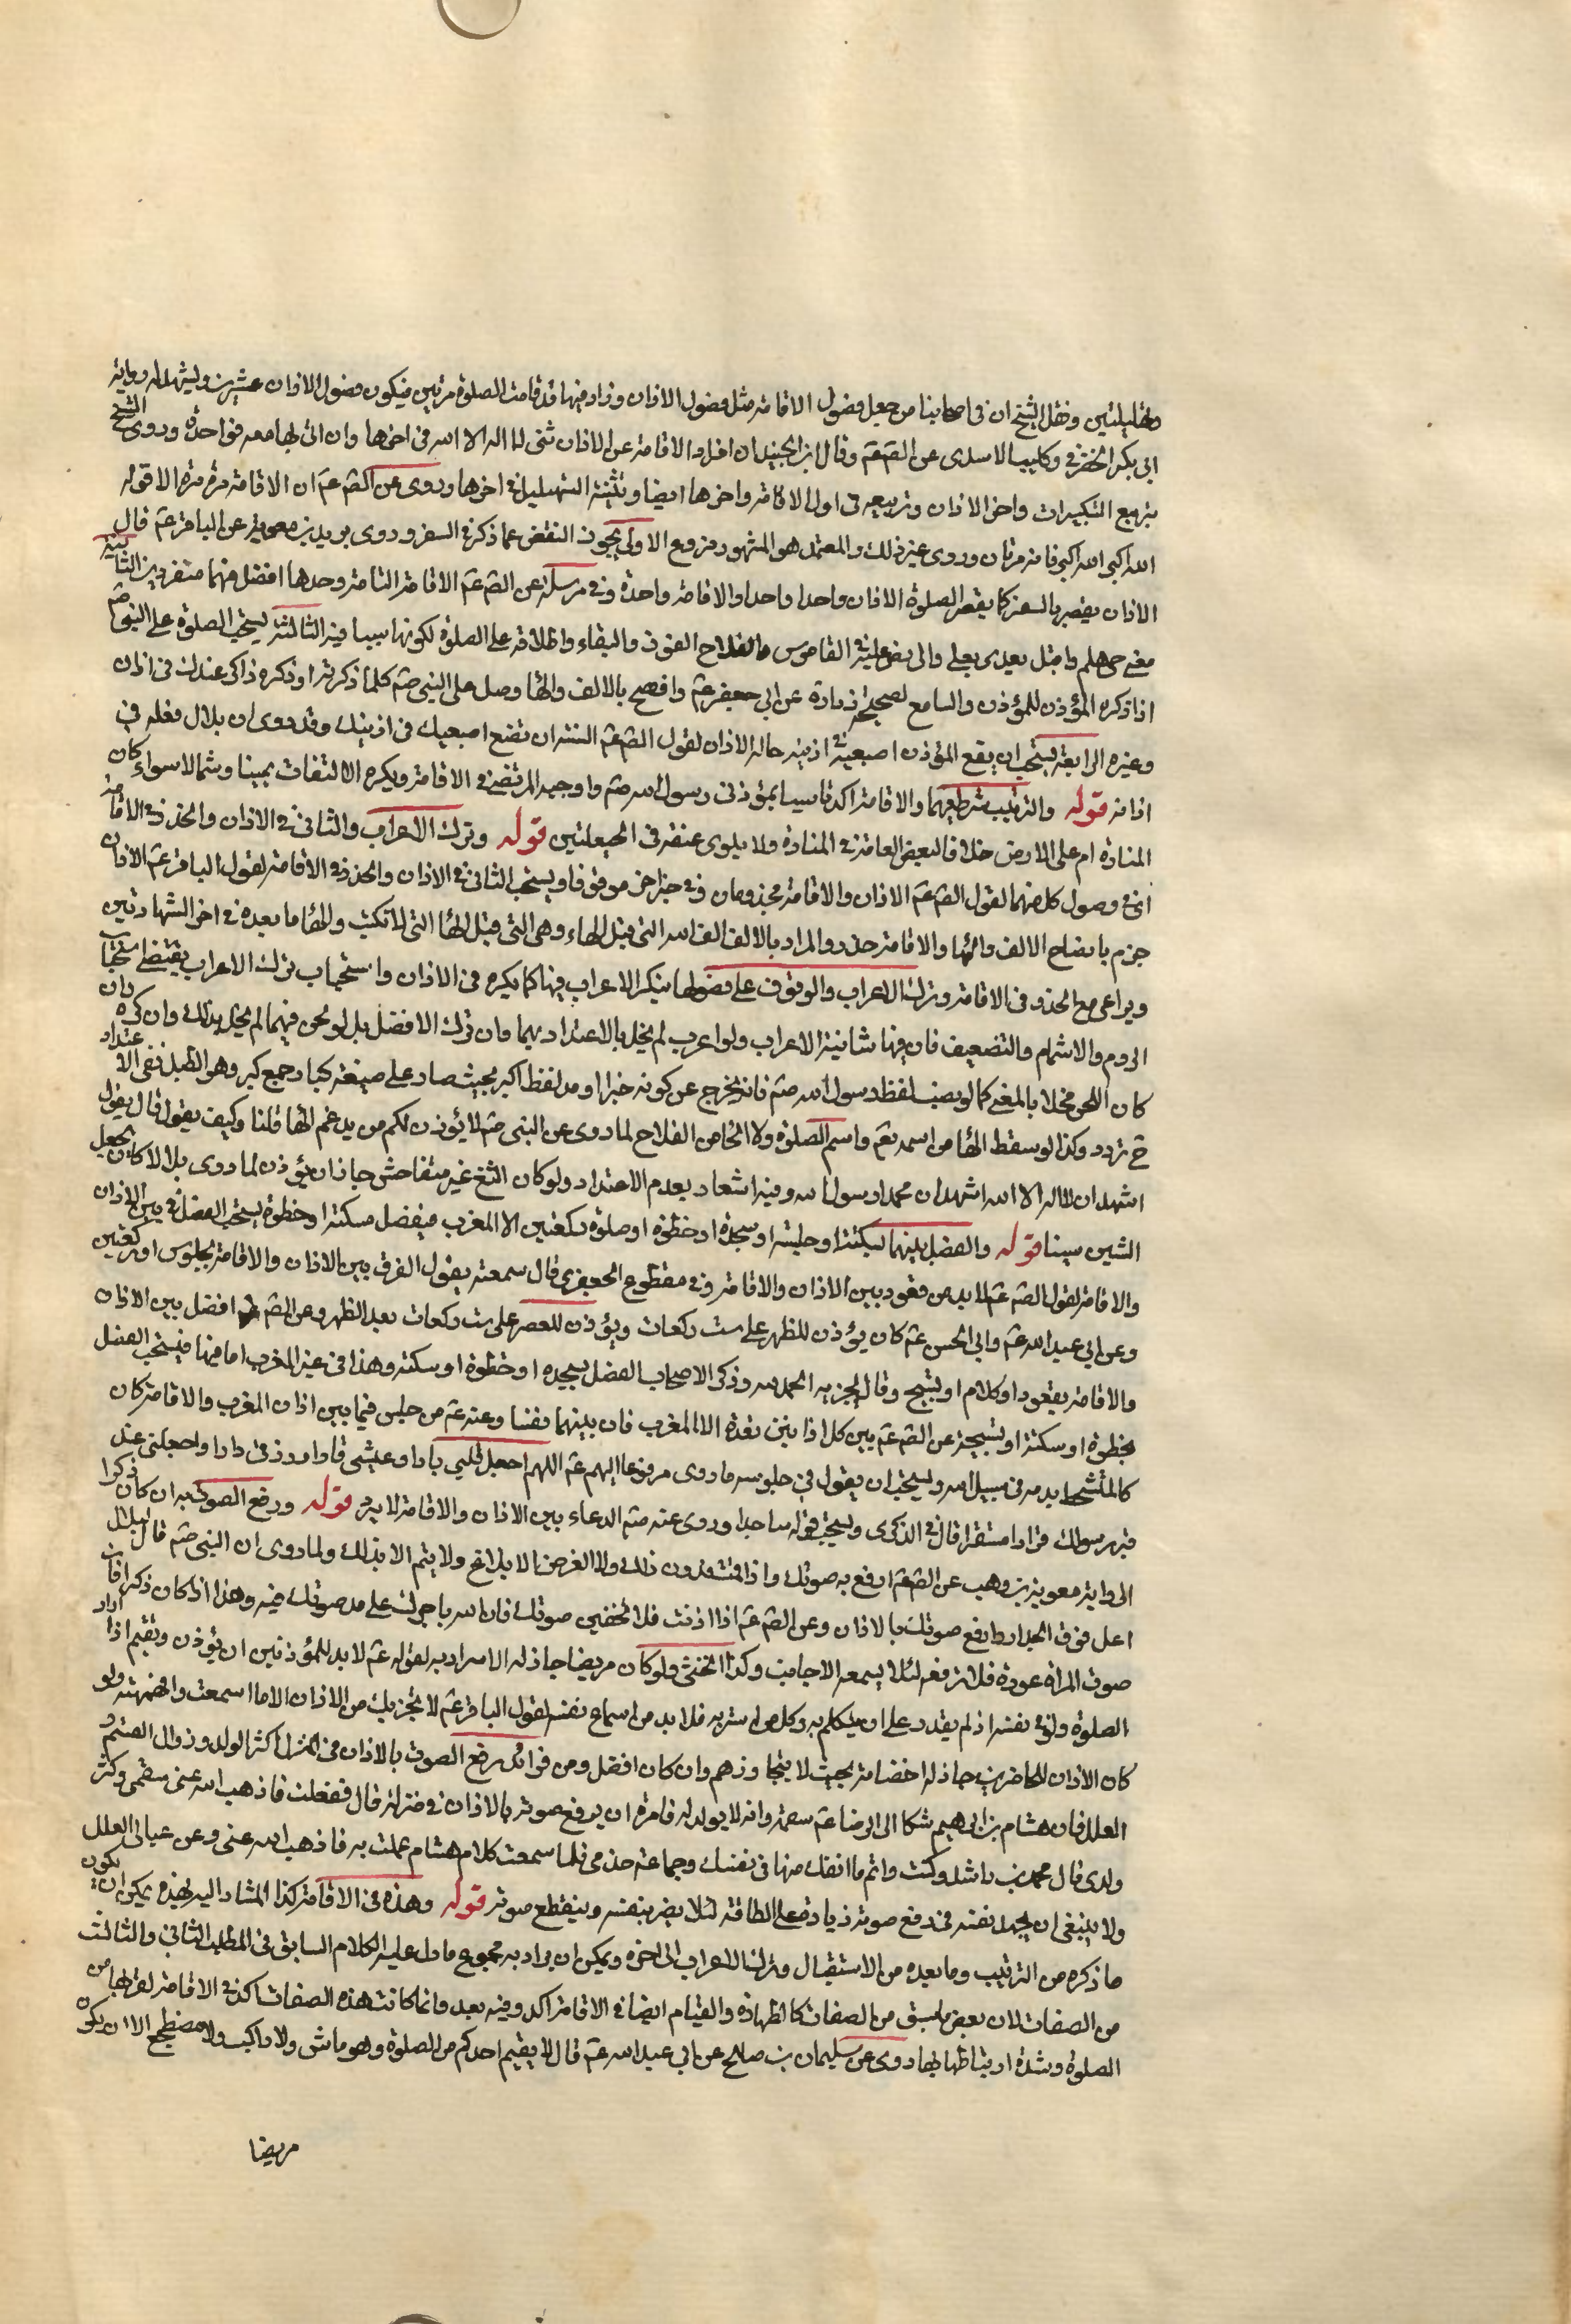 وتهليلتين ونقل الشيخ ان فى اصحابنا من جعل فصول الاقامة مثل فصول الاذان وزاد فيها قد قامت الصلوة مرتين فيكون فصول الاذان عشرين ويشهد له رواية
ابى بكر الحضرمى وكليب الاسدى عن الصّ عّم وقال ابن الجنيد ان افرد الاقامة عن الاذان ثنى لا اله الا الله فى اخرها وان اتى بها معه فواحدة وروى الشيخ
تربيع التكبيرات واخر الاذان وتربيعه فى اول الاقامة واخرها ايضا وتثنية التهليل فى اخرها وروى عن الصّ عّم ان الاقامة مرة مرة الا قوله
الله اكبر الله اكبر فانه مرتان وروى غير ذلك والمعتمد هو المشهور فروع الاولى يجوز النقص عما ذكر فى السفر وروى بريد بن معوية عن الباقر عّم قال
الاذان يقصر بالسفر كما يقصر الصلوة الاذان واحدا واحدا والاقامة واحدة وفى مرسلة عن الصّ عّم الاقامة التامة وحدها افضل منهما منفردين الثانية
معنى حى هلم واقبل يعدى بعلى والى نص عليه فى القاموس والفلاح الفوز والبقاء واطلاقه على الصلوة لكونها سببا فيه الثالثة يستحب الصلوة على النبى صّم
اذا ذكره المؤذن للمؤذن والسامع لصحيحة زرارة عن ابى جعفر عّم وافصح بالالف والها وصل على النبى صّم كلما ذكرته او ذكره ذاكر عندك فى اذان
وغيره الرابعة يستحب ان يضع المؤذن اصبعيه فى اذنيه حالة الاذان لقول الصّ عّم السنة ان تضع اصبعيك فى اذنيك وقد روى ان بلال فعله فى
اذانه قوله والترتيب شرط فيهما والاقامة اكد تاسيا بمؤذنى رسول الله صّم واوجبه المرتضى فى الاقامة ويكره الالتفات يمينا وشمالا سواء كان
المنارة ام على الارض خلافا لبعض العامة فى المنارة ولا يلوى عنقه فى الحيعلتين قوله وترك الاعراب والتانى فى الاذان والحدر فى الاقامة
اى فى فصول كل منهما لقول الصّ عّم الاذان والاقامة مجزومان وفى خبر اخر موقوفا ويستحب التانى فى الاذان والحدر فى الاقامة لقول الباقر عّم الاذان
جزم بافصاح الالف والها والاقامة حدر والمراد بالالف الف الله التى قبل الهاء وهى التى قبل الها التى لا تكتب والها ما بعده فى اخر الشهادتين
ويراعى مع الحدر فى الاقامة وترك الاعراب والوقوف على فصولها فيكره الاعراب فيها كما يكره فى الاذان واستحباب ترك الاعراب يقتضى استحباب
الروم والاشمام والتضعيف فان فيها شائبة الاعراب ولو اعرب لم يخل بالاعتداد بهما وان ترك الافضل بل لو لحن فيهما لم يخل بذلك وان كره وان
كان اللحن مخلا بالمعنى كما لو نصب لفظ رسول الله صّم فانه يخرج عن كونه خبرا او مد لفظ اكبر بحيث صار على صيغة كبار جمع كبر وهو الطبل ففى الاعتداد
ح تردد وكذا لو سقط الها من اسمه تعّم واسم الصلوة ولا الحا من الفلاح لما روى عن النبى صّم لا يؤذن لكم من يدغم الها قلنا وكيف يقول قال يقول
اشهد ان لااله الا الله اشهد ان محمدا رسول الله وفيه اشعار بعدم الاعتداد ولو كان الثغ غير متفاحش جاز ان يؤذن لما روى بلالا كان يجعل
الشين سينا قوله والفصل بينهما بسكتة او جلسة او سجدة او خطوة او صلوة ركعتين الا المغرب فيفصل بسكتة او خطوة يستحب الفصل بين الاذان
والاقامة لقول الصّ عّم لا بد من قعود بين الاذان والاقامة وفى مقطوع الجعفرى قال سمعته يقول الفرق بين الاذان والاقامة بجلوس او ركعتين
وعن ابى عبد الله عّم وابى الحسن عّم كان يؤذن للظهر على ست ركعات ويؤذن للعصر على ست ركعات بعد الظهر وعن الصّ عّم افصل بين الاذان
والاقامة بقعود او كلام او تسبيح وقال يجزيه الحمد لله وذكر الاصحاب الفصل بسجده او خطوة او سكتة وهذا فى غير المغرب اما فيها فيستحب الفصل
بخطوة او سكتة او تسبيحة عن الصّ عّم بين كل اذانين قعدة الا المغرب فان بينهما نفسا وعنه عّم من جلس فيما بين اذان المغرب والاقامة كان
كالمتشحط بدمه فى سبيل الله ويستحب ان يقول فى جلوسه ما روى مرفوعا اليهم عّم اللهم اجعل قلبى بارا وعيشى قارا ورزقى دارا واجعلنى عند
قبر رسولك قرارا مستقرا قال فى الذكرى ويستحب قوله ساجدا وروى عنه صّم الدعاء بين الاذان والاقامة لا يرد قوله ورفع الصوت به ان كان ذكرا
الى رواية معوية بن وهب عن الصّ عّم ارفع به صوتك واذا اقمت فدون ذلك ولا الغرض الابلاغ ولا يتم الا بذلك ولما روى ان النبى صّم قال لبلال
اعل فوق الجدار وارفع صوتك بالاذان وعن الصّ عّم اذا اذنت فلا تخفين صوتك فان الله ياجرك على مد صوتك فيه وهذا اذا كان ذكرا فان
صوت المراة عورة فلا ترفعه لئلا يسمعه الاجانب وكذا الخنثى ولو كان مريضا جاز له الاسرار به لقوله عّم لا بد للمؤذنين ان يؤذن ويقيم اذا اراد
الصلوة ولو فى نفسه اذ لم يقدر على ان يتكلم به وكل من اسر به فلا بد من اسماع نفسه لقول الباقر عّم لا يجزيك من الاذان الا ما اسمعت وافهمته ولو
كان الاذان للحاضرين جاز له اخفاته بحيث لا يتجاوزهم وان كان افضل ومن فوائد رفع الصوت بالاذان فى المنزل كثرة الولد وزوال السقم و
العلل فان هشام بن ابرهيم شكا الى الرضا عّم سقمه وانه لا يولد له فامره ان يرفع صوته بالاذان فى منزله قال ففعلت فاذهب الله عنى سقمى وكثر
ولدى قال محمد بن راشد وكنت دائم ما انفك منها فى نفسى وجماعة خدمى فلما سمعت كلام هشام عملت به فاذهب الله عنى وعن عيالى العلل
ولا ينبغى ان يجهد نفسه فى رفع صوته زيادة على الطاقة لئلا يضر بنفسه وينقطع صوته قوله وهذه فى الاقامة اكد المشار اليه بهذه يمكن ان يكون
ما ذكره من الترتيب وما بعده من الاستقبال وترك الاعراب الى اخره ويمكن ان يراد به مجموع ما دل عليه الكلام السابق فى المطلب الثانى والثالث
من الصفات لان بعض ما سبق من الصفات كالطهارة والقيام ايضا فى الاقامة اكد وفيه بعد وانما كانت هذه الصفات اكد فى الاقامة لقربها من
الصلوة وشدة ارتباطها بها روى عن سليمان بن صالح عن ابى عبد الله عّم قال لا يقيم احدكم من الصلوة وهو ماش ولا راكب ولا مضطجع الا ان يكون
مريضا